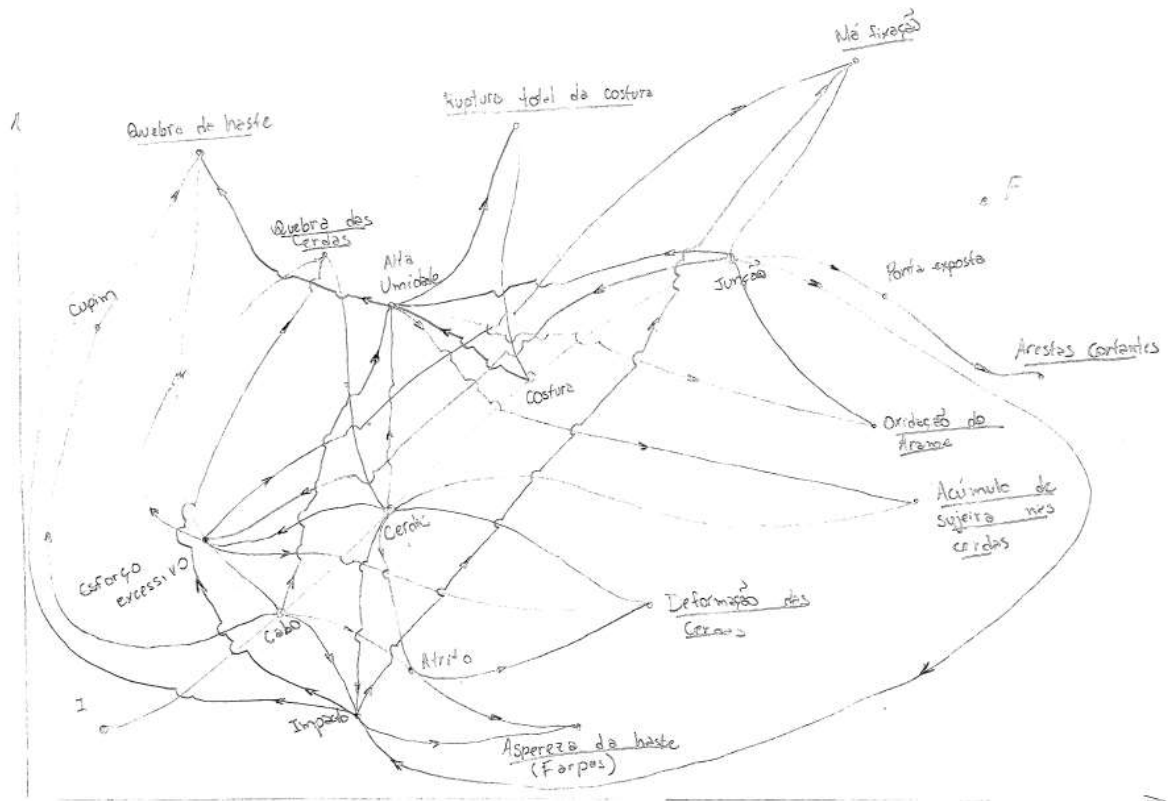 Má fixação
Ruptura total da costura
Quebra da haste
Quebra das
Cerdas
Alta
Umidade
F
Cupim
Junção
Ponta exposta
Arestas Cortantes
Costura
Oxidação do
Arame
Acúmulo de
sujeira nas
cerdas
Cerdas
Esforço
excessivo
Cabo
Deformação das
Cerdas
Atrito
I
Impacto
Aspereza da haste
(Farpas)